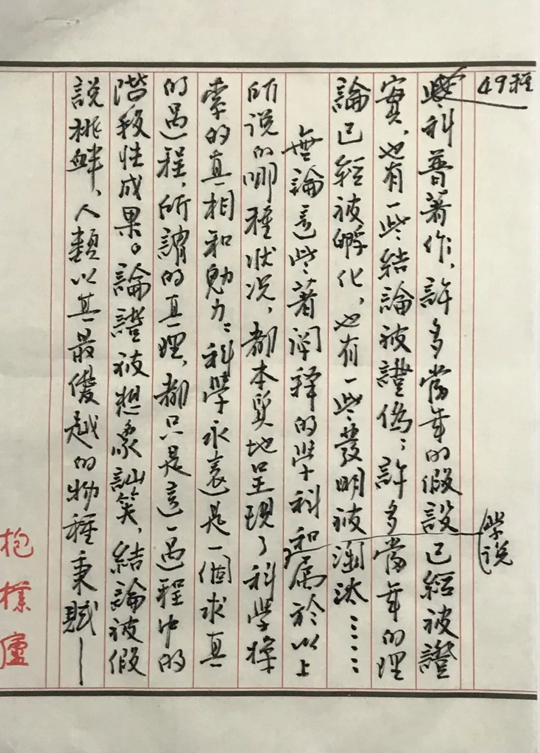 49種
些科普著作,許多當年的假設已經被證
實,也有一些結論被證偽;許多當年的理
論已經被孵化,也有一些發明被淘汰……
學说
無論這些著阐释的學科和属於以上
所说的哪種狀况,都本質地呈現了科學探
索的真相和魅力;科學永遠是一個求真
的過程,所謂的真理,都只是這一過程中的
階段性成果。論證被想象訕笑,結論被假
說挑衅,人類以其最優越的物種秉賦—
抱樸廬